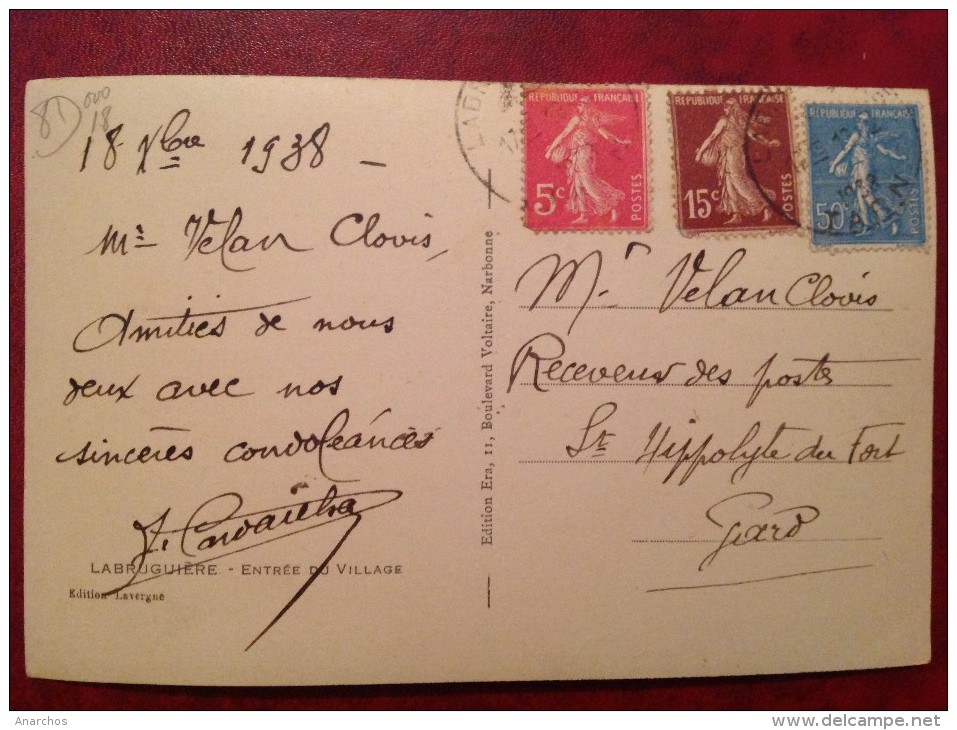 81
18
18 Xbre 1938 –
Mr Velan Clovis,
Amitiés de nous
deux avec nos
sincères condoléances
LABRUGUIÈRE - ENTRÉE DU VILLAGE
Edition Lavergne
Edition Era, 11, Boulevard Voltaire, Narbonne
REPUBLIQUE FRANÇAISE
5c
POSTES
REPUBLIQUE FRANÇAISE
15c
POSTES
50c
POSTES
TARN
Mr Velan Clovis
Receveur des postes
St Hippolyte du Fort
Gard
Anarchos
www.delcampe.net